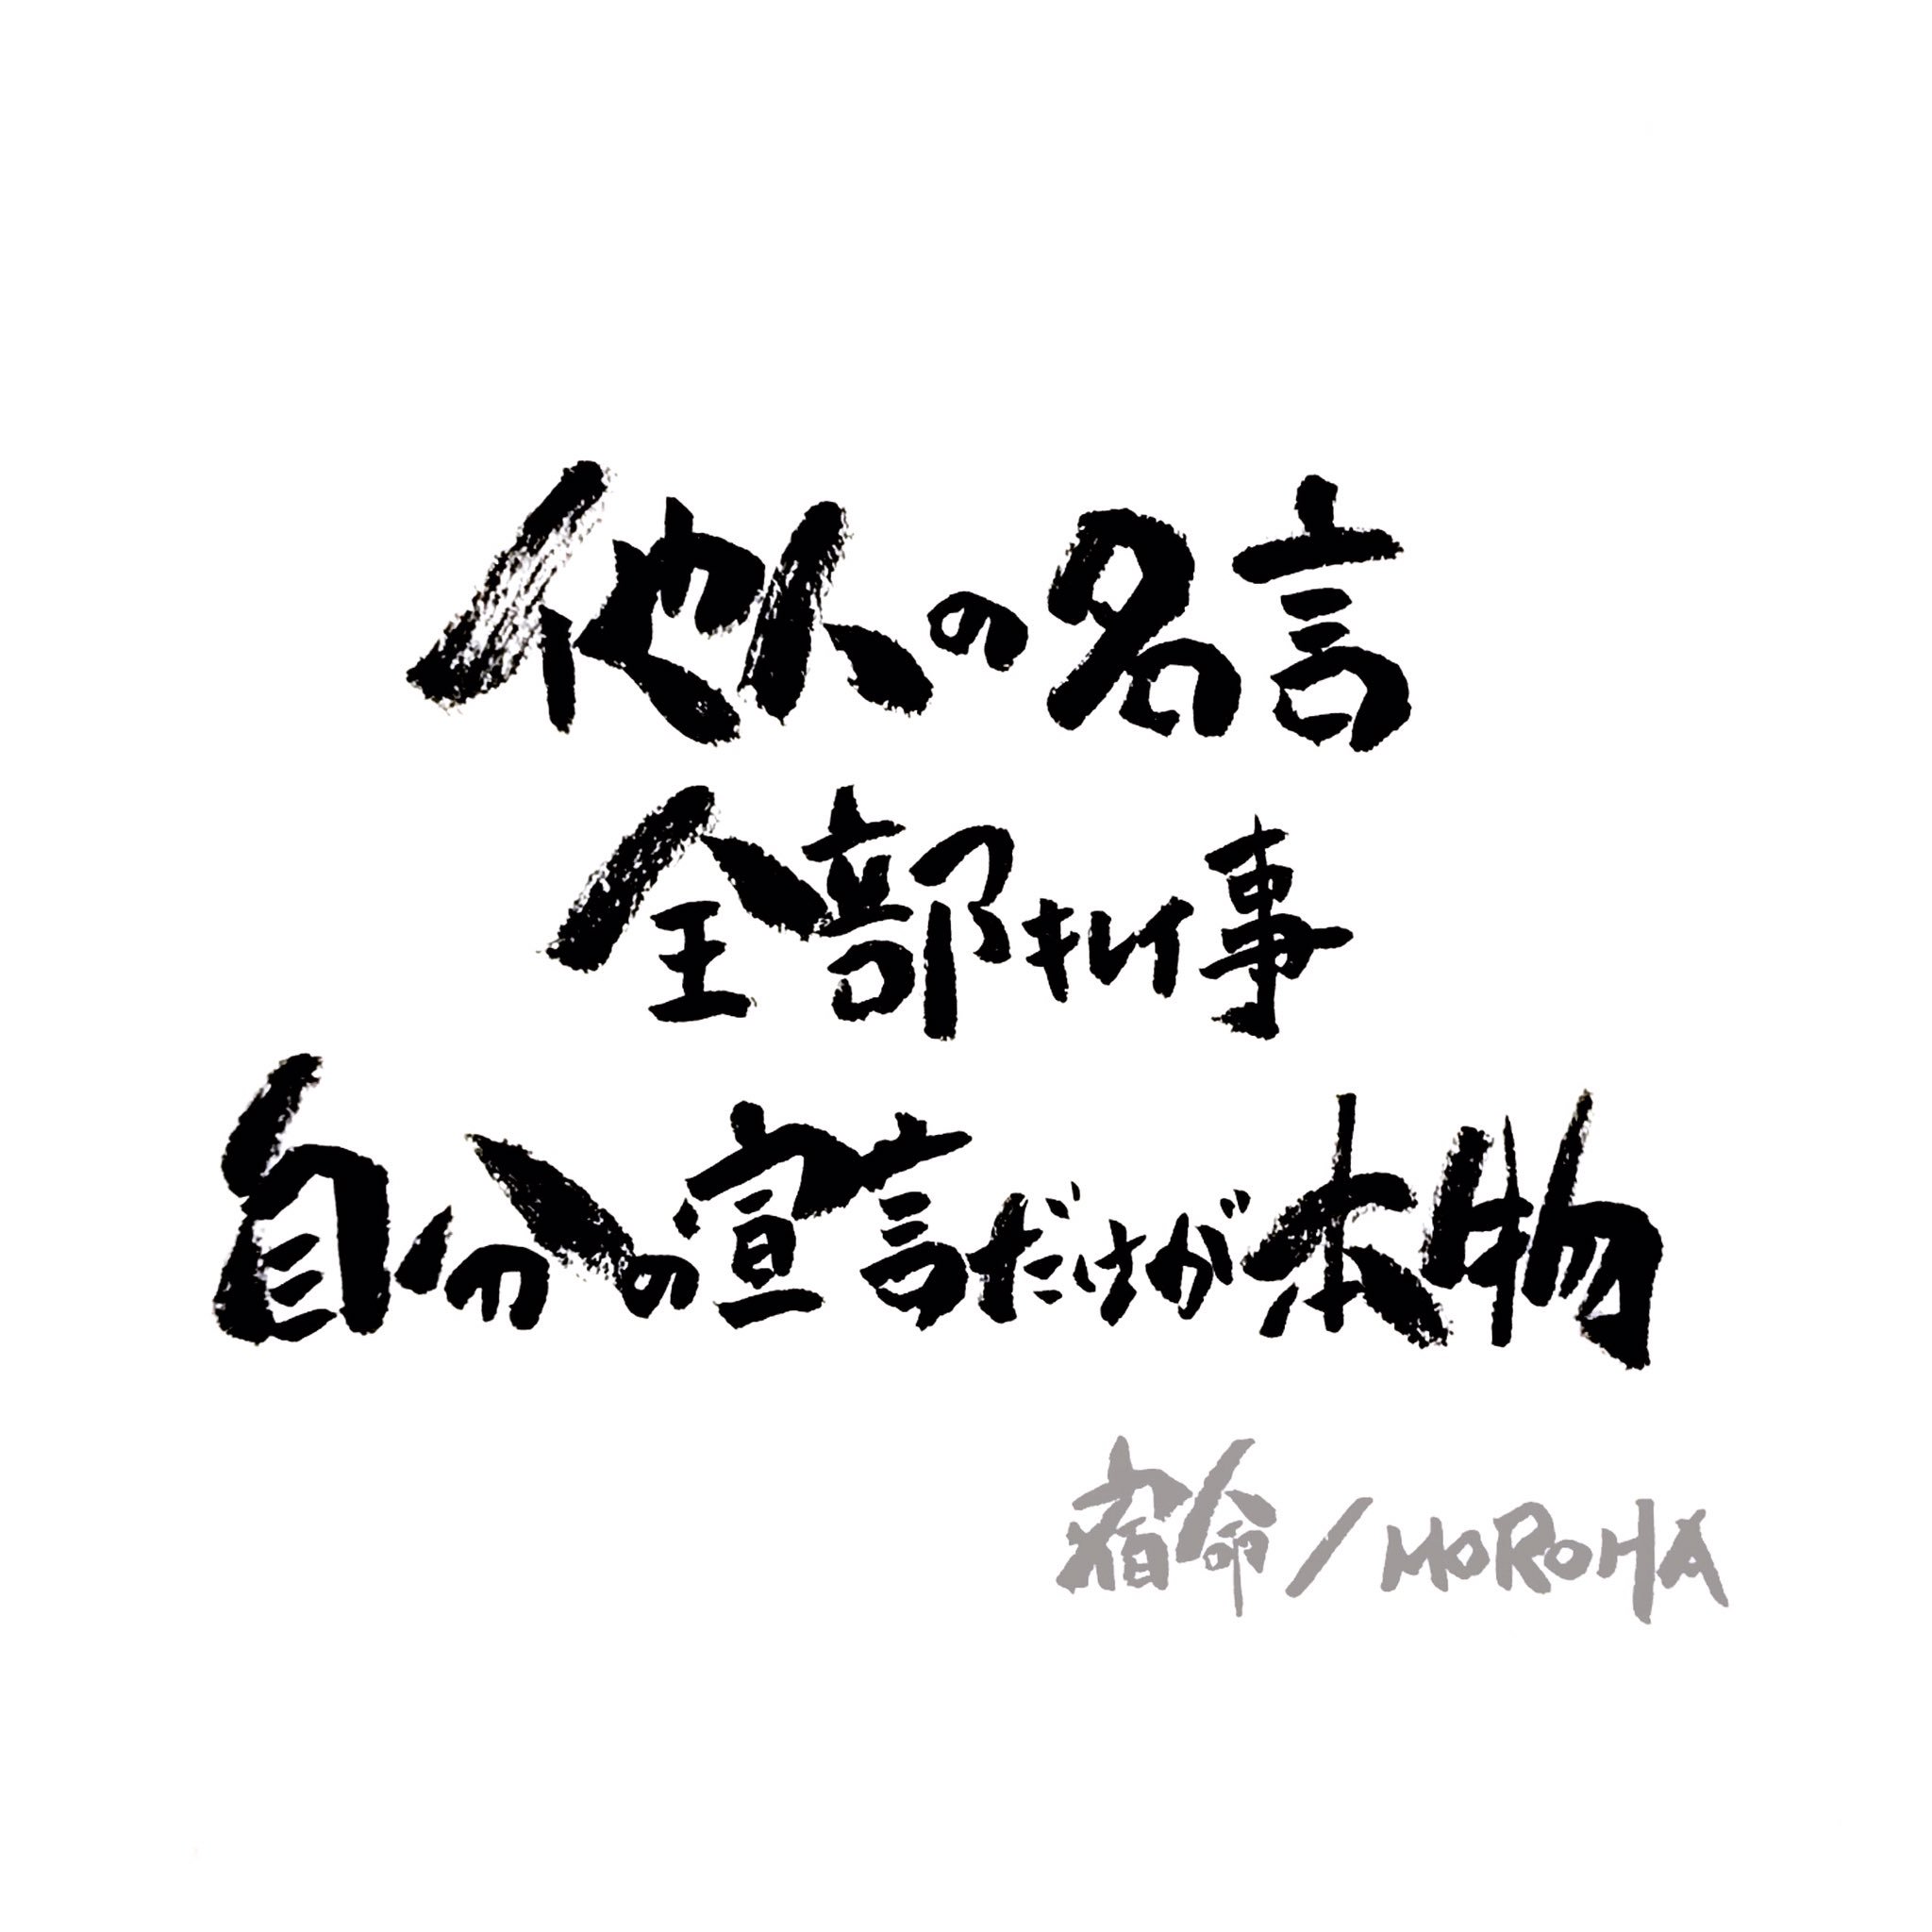 他人の名言
全部私事
自分の宣言だけが本物
宿命/MOROHA